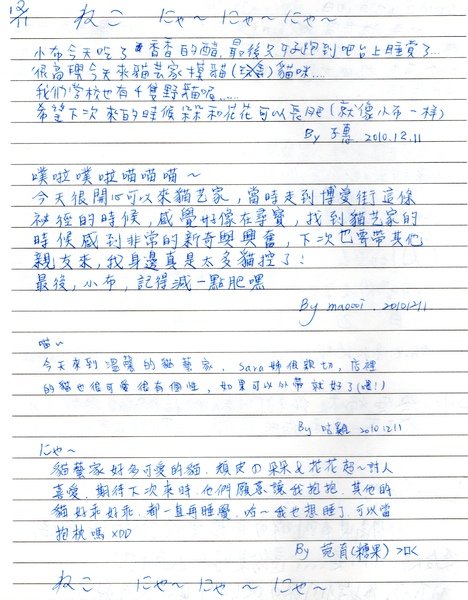 12/11 ねこ にゃ～ にゃ～ にゃ～
小布今天吃了 香香的醋, 最後又好跑到吧台上睡覺了…
很高興今天來貓芸家摸貓 貓咪….
我們學校也有千隻野貓喔……
希望下次來的時候朵朵和花花可以長肥 (就像小布一樣)
By 2010.12.11
噗啦噗啦喵喵喵～
今天很開心可以來貓芸家, 當時走到博愛街這條
祕徑的時候, 感覺好像在尋寶, 找到貓芸家的
時候感到非常的新奇與興奮, 下次也要帶其他
親友來, 我身邊真是太多貓控了!
最後, 小布, 記得減一點肥嘿
By maoooi. 20101211
喵～
今天來到溫馨的貓藝家. Sara姊很親切, 店裡
的貓也很可愛很有個性, 如果可以外帶就好了(嘿!)
By 咕雞 20101211
にゃ～
貓藝家好多可愛的貓. 頑皮の朵朵&花花超～討人
喜愛. 期待下次來時. 他們願意讓我抱抱. 其他的
貓好乖好乖. 都一直再睡覺. 哈～我也想睡了. 可以當
抱枕嗎 XDD
By 苑育(糖果)
ねこ にゃ～ にゃ～ にゃ～